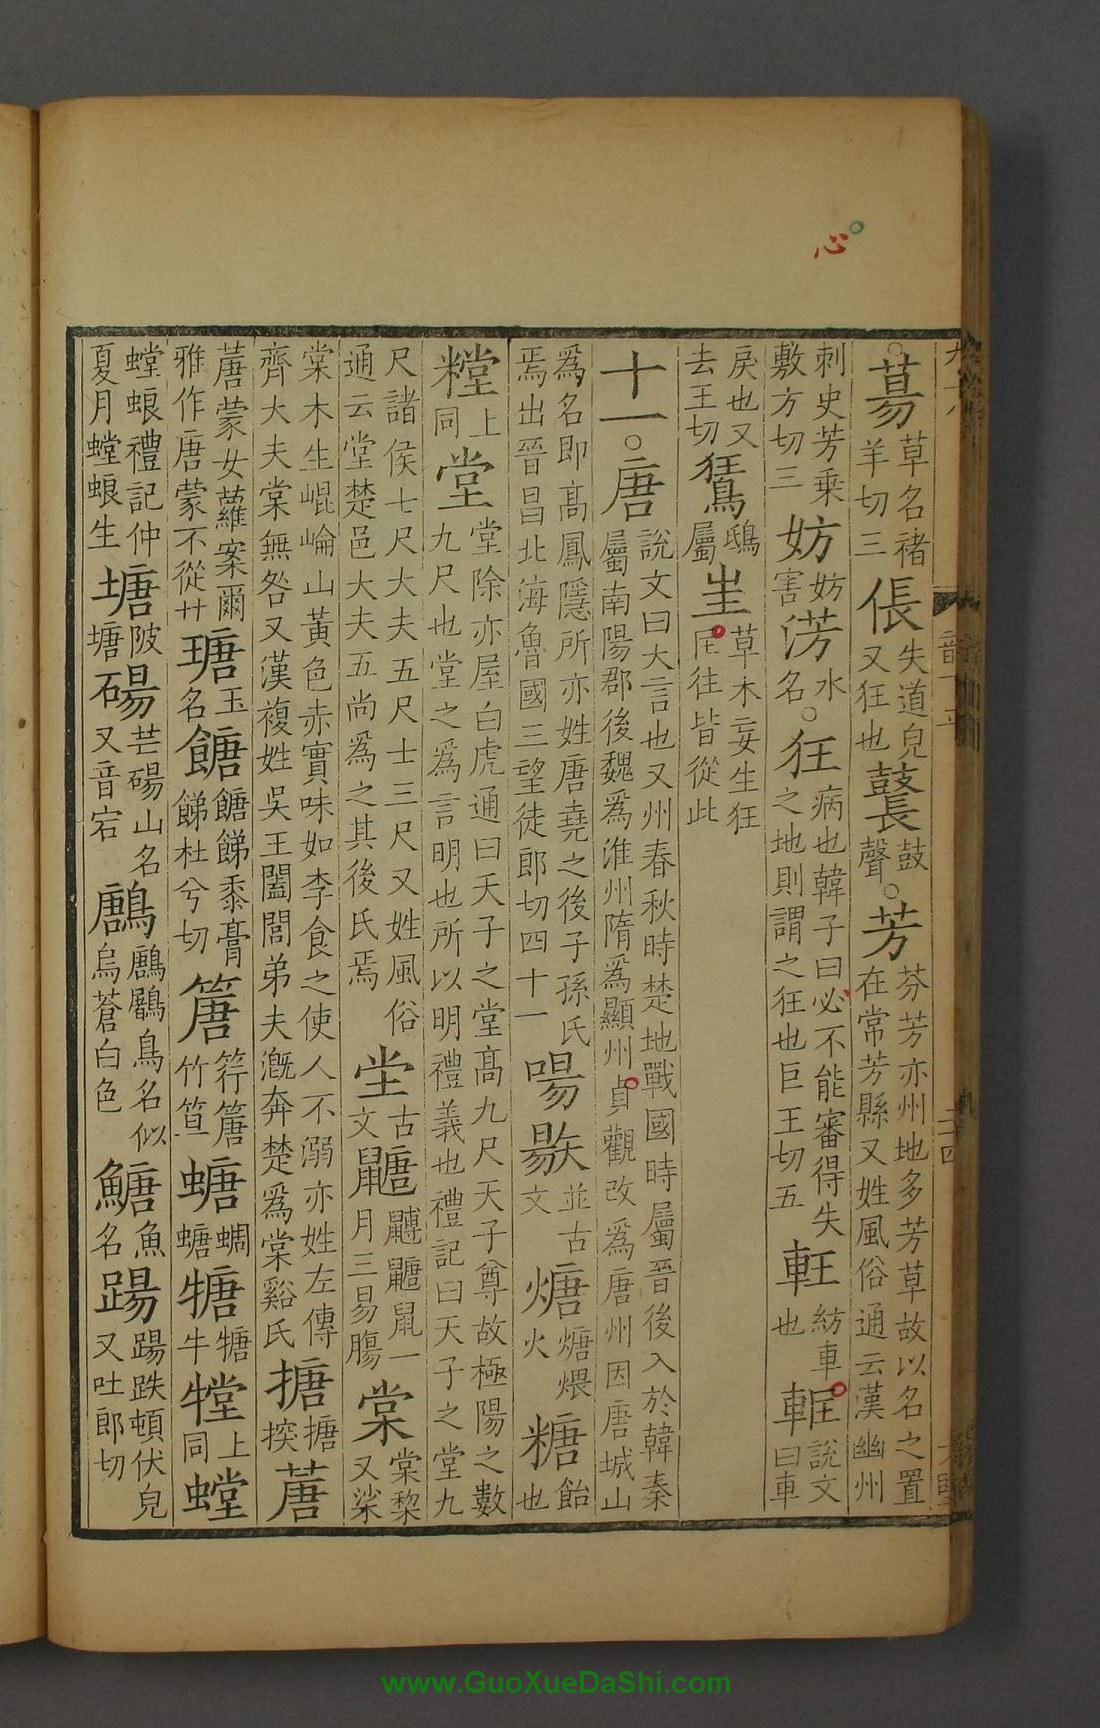 草名褚羊切三倀失道皃又狂也鼚鼓聲○芳芬芳亦州地多芳草故以名之置在常芳縣又姓風俗通云漢幽州
刺史芳乗敷方切三妨妨害淓水名○狂病也韓子曰必不能審得失之地則謂之狂也巨王切五軖紡車也軭說文曰車
戾也又去王切鵟鴟屬㞷草木妄生狂匡往皆從此
十一○唐說文曰大言也又州春秋時楚地戰國時屬晉後入於韓秦屬南陽郡後魏爲淮州隋爲顯州貞觀改爲唐州因唐城山
爲名即高鳳隱所亦姓唐堯之後子孫氏焉出晉昌北海魯國三望徒郎切四十一啺並古文煻煻煨火糖飴也
糛上同堂堂除亦屋白虎通曰天子之堂高九尺天子尊故極陽之數九尺也堂之爲言明也所以明禮義也禮記曰天子之堂九
尺諸侯七尺大夫五尺士三尺又姓風俗通云堂楚邑大夫五尚爲之其後氏焉坣古文鼠一月三易腸棠棠棃又
棠木生崐崘山黃色赤實味如李食之使人不溺亦姓左傳齊大夫棠無咎又漢複姓吳王闔閭弟夫漑奔楚爲棠谿氏搪搪揬蓎
蓎蒙女蘿案爾雅作唐蒙不從艹瑭玉名餹餹䬾黍膏䬾杜兮切篖筕篖竹笪螗蜩螗牛上同螳
螳蜋禮記仲夏月螳蜋生塘陂塘碭芒碭山名又音宕鶶鶶鷵鳥名似烏蒼白色魚名踼踼跌頓伏皃又吐郎切
心
www.GuoXueDaShi.com